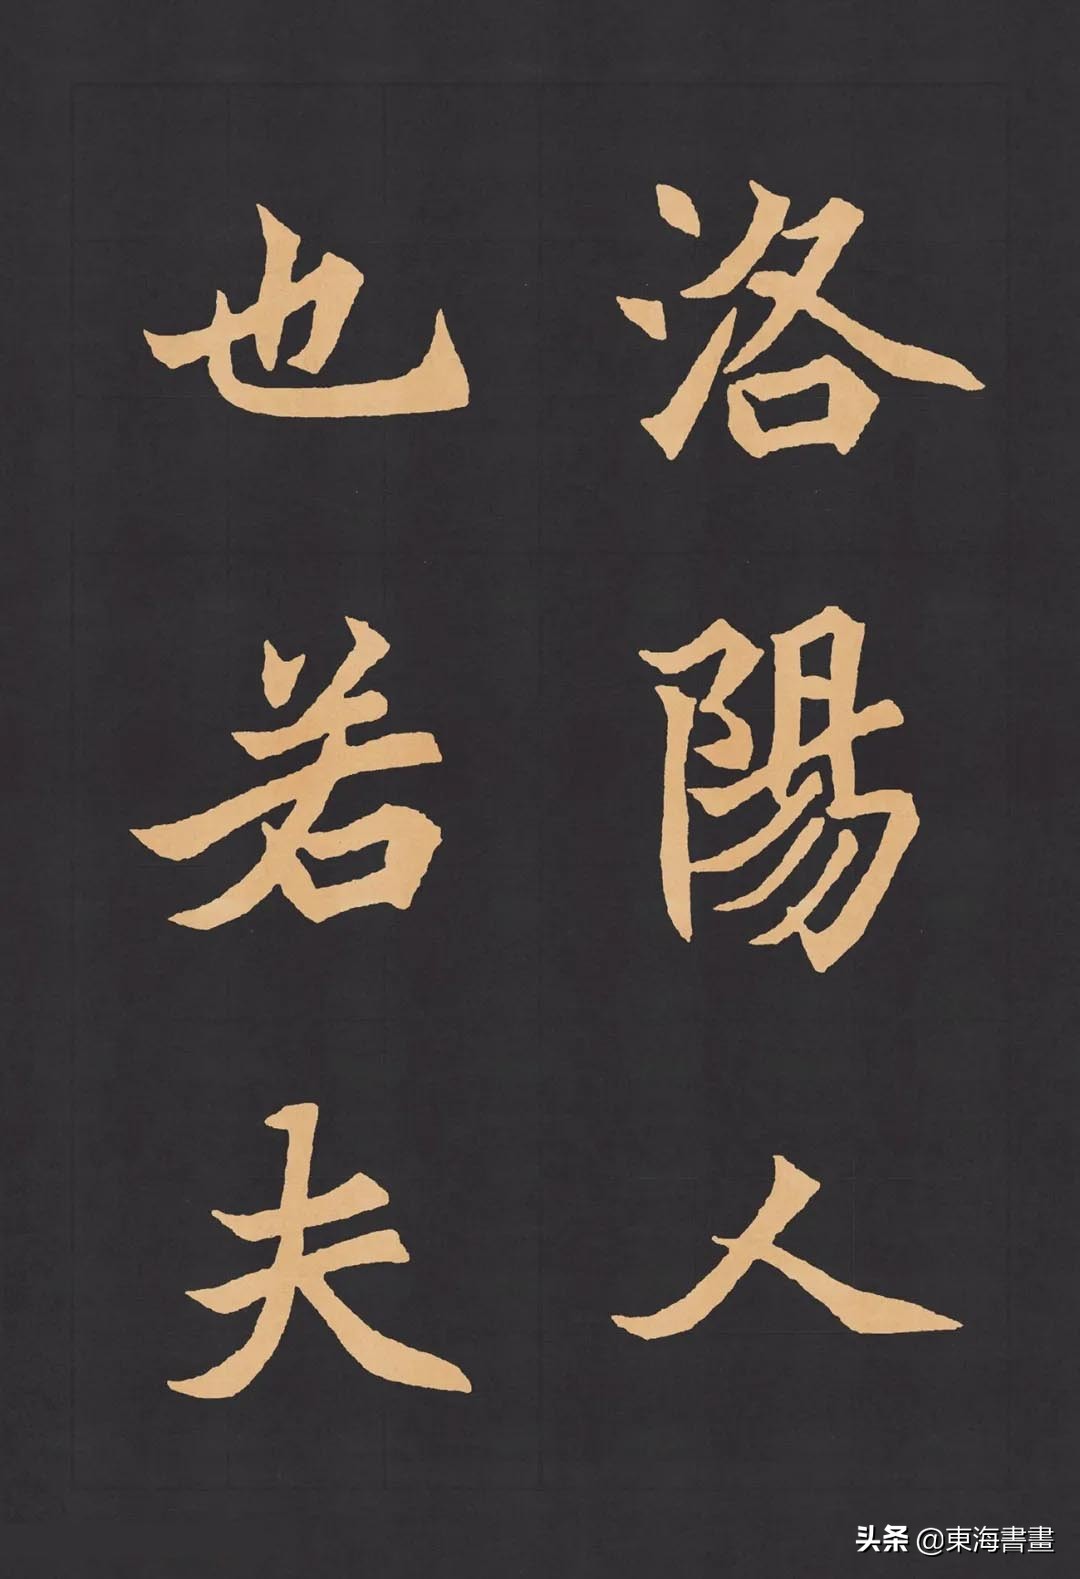 洛陽人
也若夫
头条 @東海書畫